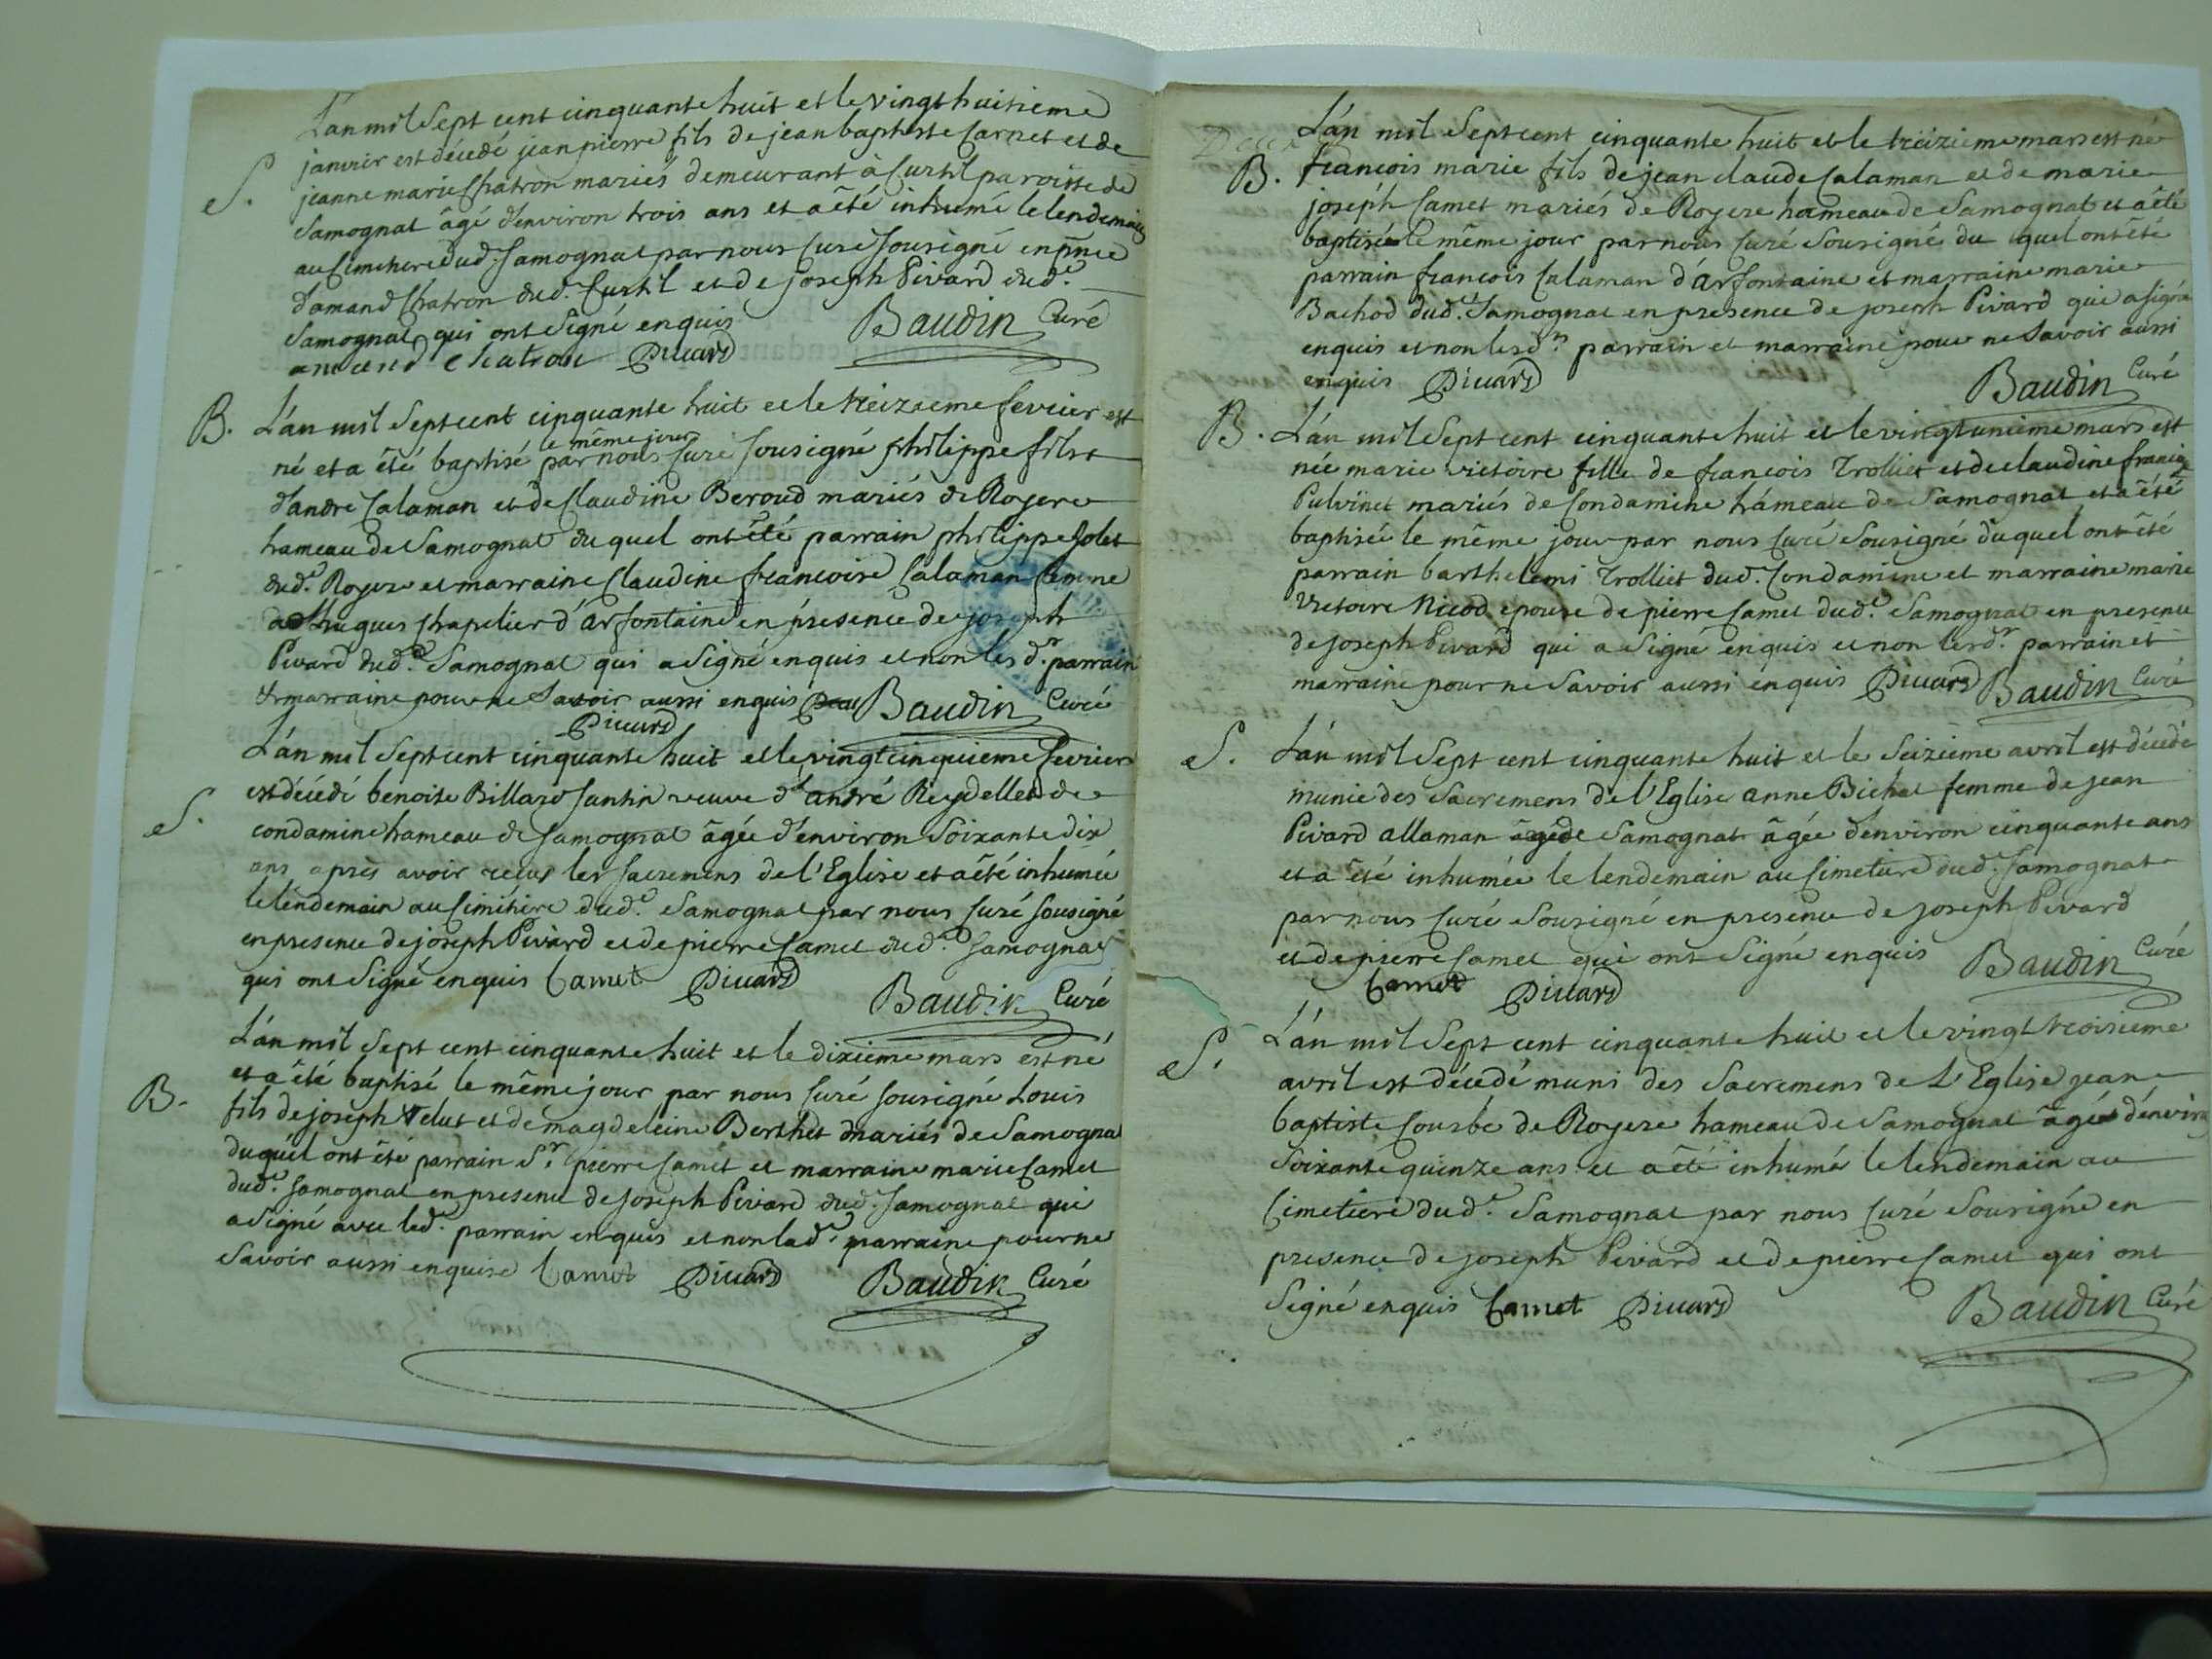 L'an mil Sept cent cinquante huit et le vingt huitieme
janvier est décedé jean pierre fils de jean baptiste Carnet et de
jeanne marie Chatron mariés demeurant à Curtil paroisse de
S. Samognat âgé d'environ trois ans et a été inhumé le lendemain
au Cimetiere dud. Samognat par nous Curé Sousigné en pnce
d'amand Chatron dud. Curtil et de joseph Pivard dud.e
Samognat qui ont Signé enquis Baudin Curé
amand chatron Pivard
B. L'án mil Sept cent cinquante huit et le treizieme fevrier est
le même jour
né et a été baptisé par nous Curé Sousigné philippe fils
d'andré Calaman et de Claudine Beroud mariés de Rogere
hameau de Samognat du quel ont été parrain philippe Jolet
dud.e Rogere et marraine Claudine francoise Calaman femme
d'hugues Chapelier d'arfontaine en présence de joseph
Pivard dud.e Samognat qui a Signé enquis et non les d.r parrain
& marraine pour ne Savoir aussi enquis Baudin Curé
Pivard
L'án mil Sept cent cinquante huit et le vingt cinquieme fevrier
est décédé benoite Billard Santin veuve d'andré Reydellet de
S. condamine hameau de Samognat âgée d'environ Soixante dix
ans après avoir recus les Sacremens de l'Eglise et a été inhumée
le lendemain au Cimitière dud.e Samognat par nous Curé Sousigné
en presence de joseph Pivard et de pierre Camet dud.e Samognat
qui ont Signé enquis Camet Pivard
Baudin Curé
L'án mil Sept cent cinquante huit et le dixieme mars est né
et a été baptisé le même jour par nous Curé Sousigné Louis
B. fils de joseph Velut et de magdeleine Berthet mariés de Samognat
duquel ont été parrain S.r pierre Camet et marraine marie Camet
dud.e Samognat en presence de Joseph Pivard dud. Samognat qui
a Signé avec led.e parrain enquis et non lad.e marraine pour ne
Savoir aussi enquise Camet Pivard Baudin Curé
L'án mil Sept cent cinquante huit et le treizieme mars est né
B. francois marie fils de jean claude Calaman et de marie
joséph Camet mariés de Rogere hameau de Samognat et a été
baptisé le même jour par nous Curé Sousigné du quel ont été
parrain francois Calaman d'Arfontaine et marraine marie
Bachod dud.e Samognat en presence de joseph Pivard qui a signé
enquis et non lesd.rs parrain et marraine pour ne Savoir aussi
enquis Pivard Baudin Curé
B. L'án mil Sept cent cinquante huit et le vingt unieme mars est
née marie victoire fille de francois Trolliet et de claudine francoise
Pulvinet mariés de Condamine hámeau de Samognat et a été
baptisée le même jour par nous Curé Sousigné duquel ont été
parrain barthelemi Trolliet dud.e Condamine et marraine marie
Victoire Nicod epouse de pierre Camet dud.e Samognat en presence
de Joseph Pivard qui a Signé enquis et non lesd.r parrain et
marraine pour ne Savoir aussi enquis Pivard Baudin Curé
S. L'án mil Sept cent cinquante huit et le Seizieme avril est décédé
munie des Sacremens de l'Eglise anne Bichat femme de jean
Pivard allaman de Samognat âgée d'environ cinquante ans
et a été inhumée le lendemain au Cimetiere dud.e Samognat
par nous Curé Sousigné en presence de Joseph Pivard
et de pierre Camet qui ont Signé enquis Baudin Curé
Camet Pivard
L'án mil Sept cent cinquante huit et le vingt troisieme
S. avril est décedé muni des Sacremens de L'Eglise jean
baptiste Courbe de Rogere hameau de Samognat âgé d'environ
Soixante quinze ans et a été inhumé le lendemain au
Cimetiere dud.e Samognat par nous Curé Sousigné en
presence de joseph Pivard et de pierre Camet qui ont
Signé enquis Camet Pivard Baudin Curé